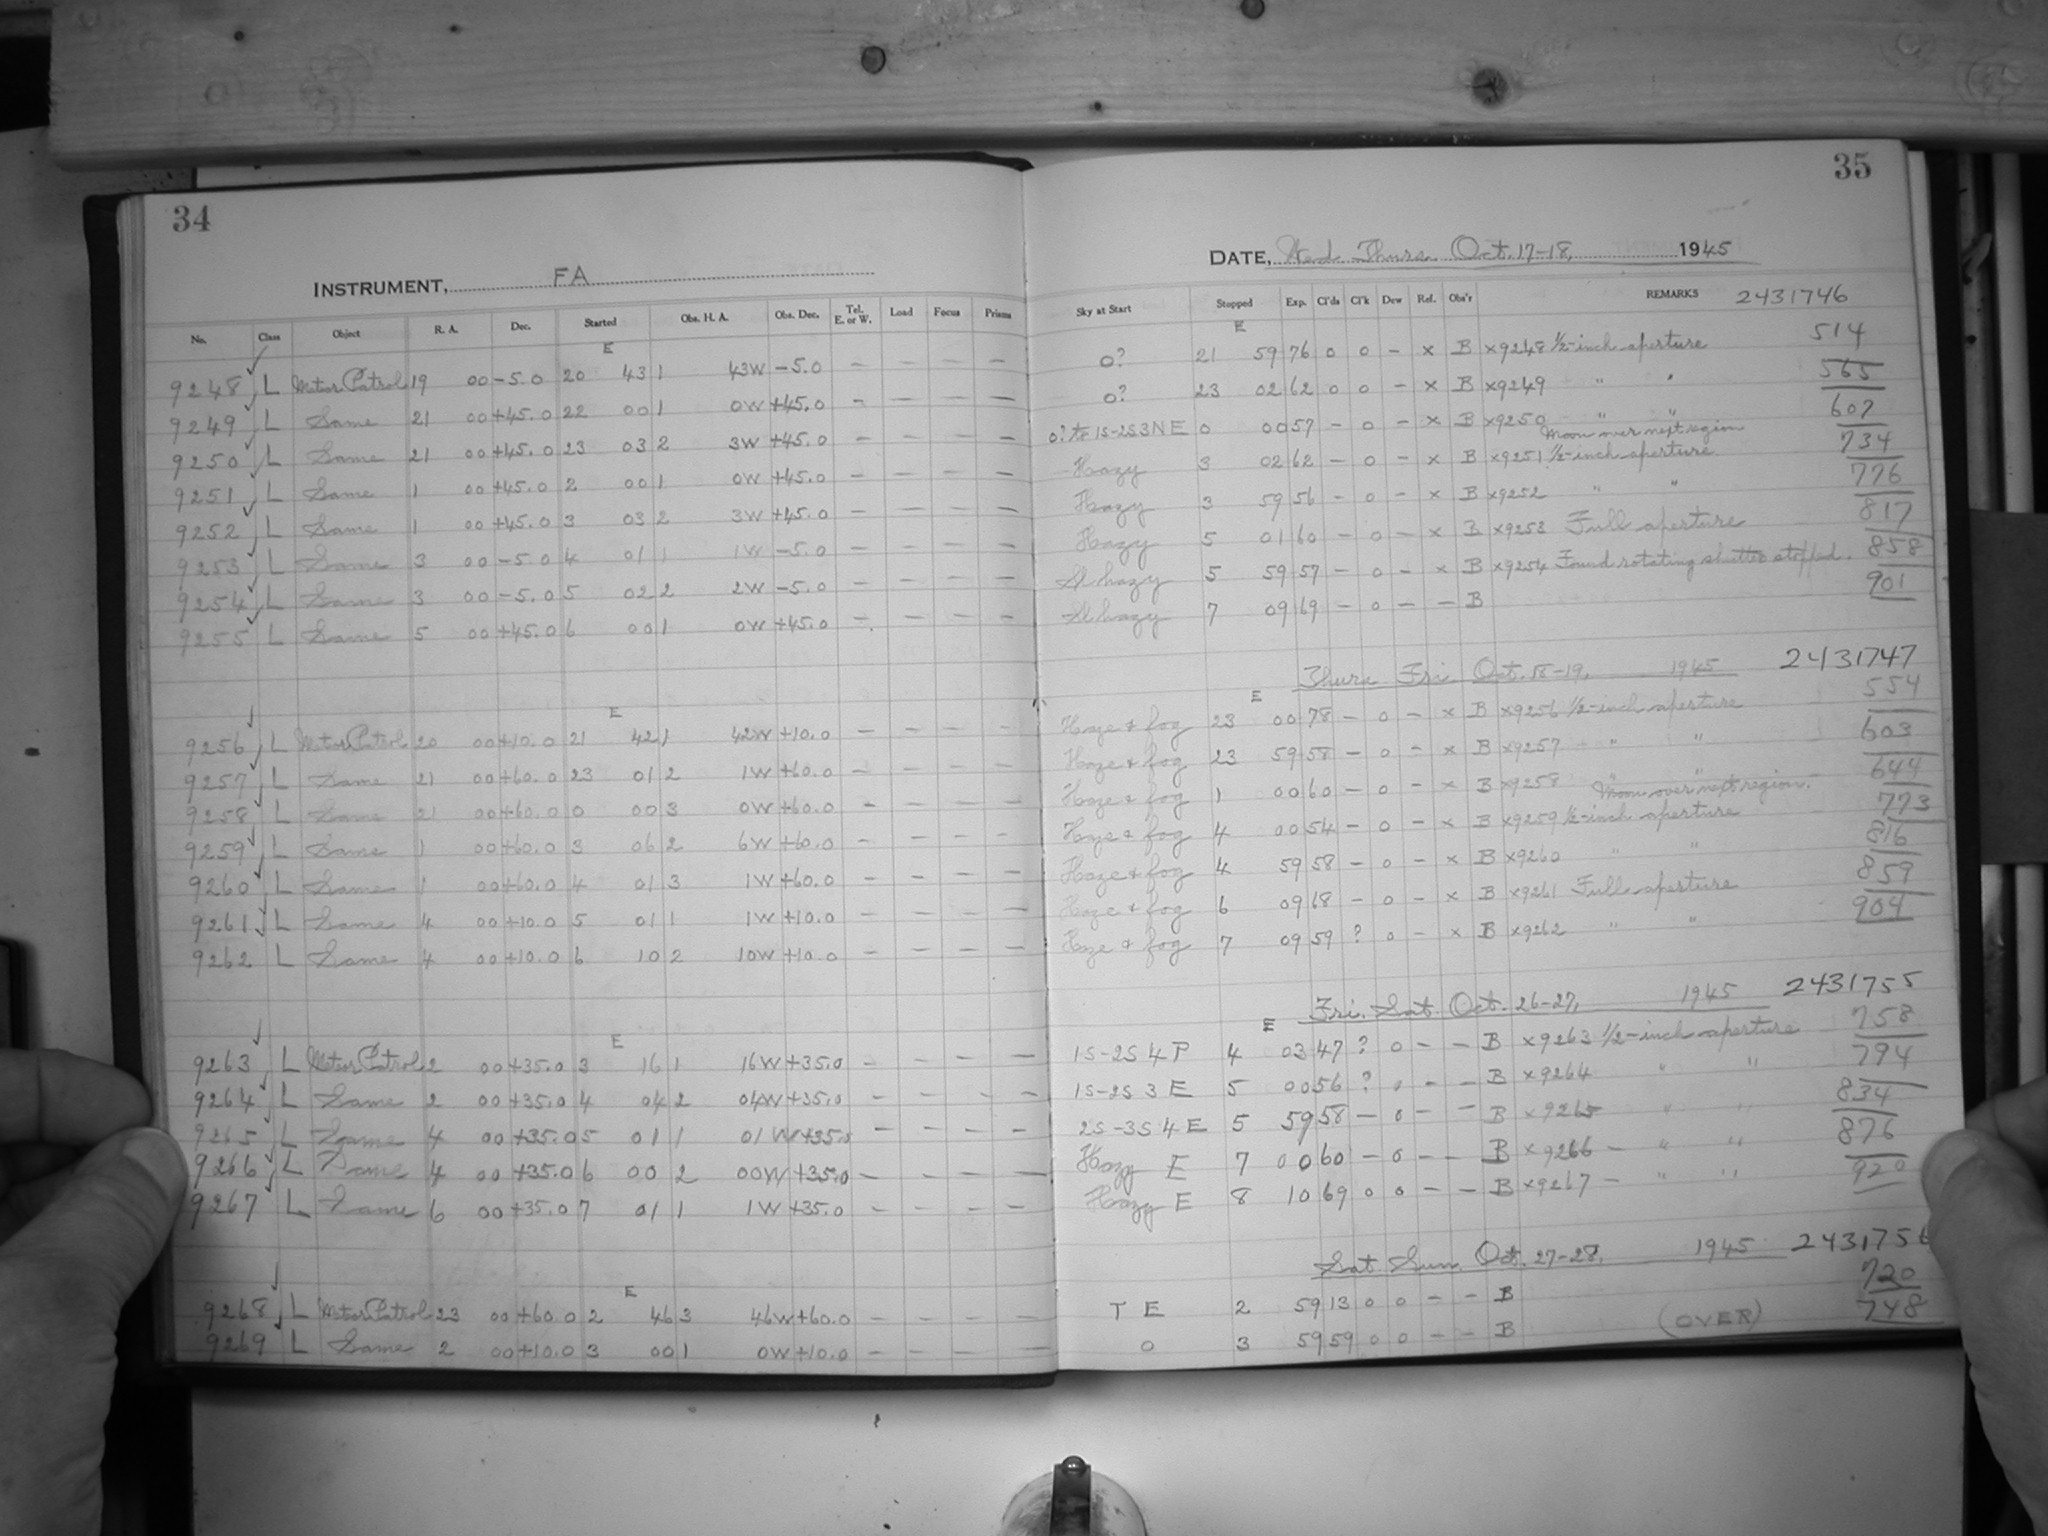 34
INSTRUMENT, FA
No. Class Object R. A. Dec. Started Obs. H. A. Obs. Dec. Tel. E. or W. Load Focus Prisms
E
9248 L Meteor Patrol 19 00 -5.0 20 43 1 43W -5.0 - - - -
9249 L Same 21 00 +45.0 22 00 1 0W +45.0 - - - -
9250 L Same 21 00 +45.0 23 03 2 3W +45.0 - - - -
9251 L Same 1 00 +45.0 2 00 1 0W +45.0 - - - -
9252 L Same 1 00 +45.0 3 03 2 3W +45.0 - - - -
9253 L Same 3 00 -5.0 4 01 1 1W -5.0 - - - -
9254 L Same 3 00 -5.0 5 02 2 2W -5.0 - - - -
9255 L Same 5 00 +45.0 6 00 1 0W +45.0 - - - -
E
9256 L Meteor Patrol 20 00 +10.0 21 42 1 42W +10.0 - - - -
9257 L Same 21 00 +60.0 23 01 2 1W +60.0 - - - -
9258 L Same 21 00 +60.0 0 00 3 0W +60.0 - - - -
9259 L Same 1 00 +60.0 3 06 2 6W +60.0 - - - -
9260 L Same 1 00 +60.0 4 01 3 1W +60.0 - - - -
9261 L Same 4 00 +10.0 5 01 1 1W +10.0 - - - -
9262 L Same 4 00 +10.0 6 10 2 10W +10.0 - - - -
E
9263 L Meteor Patrol 2 00 +35.0 3 16 1 16W +35.0 - - - -
9264 L Same 2 00 +35.0 4 04 2 04W +35.0 - - - -
9265 L Same 4 00 +35.0 5 01 1 01W +35.0 - - - -
9266 L Same 4 00 +35.0 6 00 2 00W +35.0 - - - -
9267 L Same 6 00 +35.0 7 01 1 1W +35.0 - - - -
E
9268 L Meteor Patrol 23 00 +60.0 2 46 3 46W +60.0 - - - -
9269 L Same 2 00 +10.0 3 00 1 0W +10.0 - - - -
35
DATE, Wed. Thurs. Oct. 17-18, 1945
Sky at Start Stopped Exp. Cl'ds Cl'k Dew Ref. Obs'r REMARKS 2431746
E
0? 21 59 76 0 0 - x B x9248 1/2-inch aperture 514
0? 23 02 62 0 0 - x B x9249 " " 565
0? to 1S-2S3NE 0 00 57 - 0 - x B x9250 " " 607
Moon over next region
Hazy 3 02 62 - 0 - x B x9251 1/2-inch aperture 734
Hazy 3 59 56 - 0 - x B x9252 " " 776
Hazy 5 01 60 - 0 - x B x9253 Full aperture 817
Sl hazy 5 59 57 - 0 - x B x9254 Found rotating shutter stopped. 858
Sl hazy 7 09 69 - 0 - - B 901
Thurs Fri Oct. 18-19, 1945 2431747
E
Haze & fog 23 00 78 - 0 - x B x9256 1/2-inch aperture 554
Haze & fog 23 59 58 - 0 - x B x9257 " " 603
Haze & fog 1 00 60 - 0 - x B x9258 " " 644
Moon over next region.
Haze & fog 4 00 54 - 0 - x B x9259 1/2-inch aperture 773
Haze & fog 4 59 58 - 0 - x B x9260 " " 816
Haze & fog 6 09 68 - 0 - x B x9261 Full aperture 859
Haze & fog 7 09 59 ? 0 - x B x9262 " " 904
Fri. Sat. Oct. 26-27, 1945 2431755
E
1S-2S 4 P 4 03 47 ? 0 - - B x9263 1/2-inch aperture 758
1S-2S 3 E 5 00 56 ? 0 - - B x9264 " " 794
2S-3S 4 E 5 59 58 - 0 - - B x9265 " " 834
Hazy E 7 00 60 - 0 - - B x9266 - " " 876
Hazy E 8 10 69 0 0 - - B x9267 - " " 920
Sat. Sun. Oct. 27-28, 1945 2431756
T E 2 59 13 0 0 - - B 720
0 3 59 59 0 0 - - B (OVER) 748